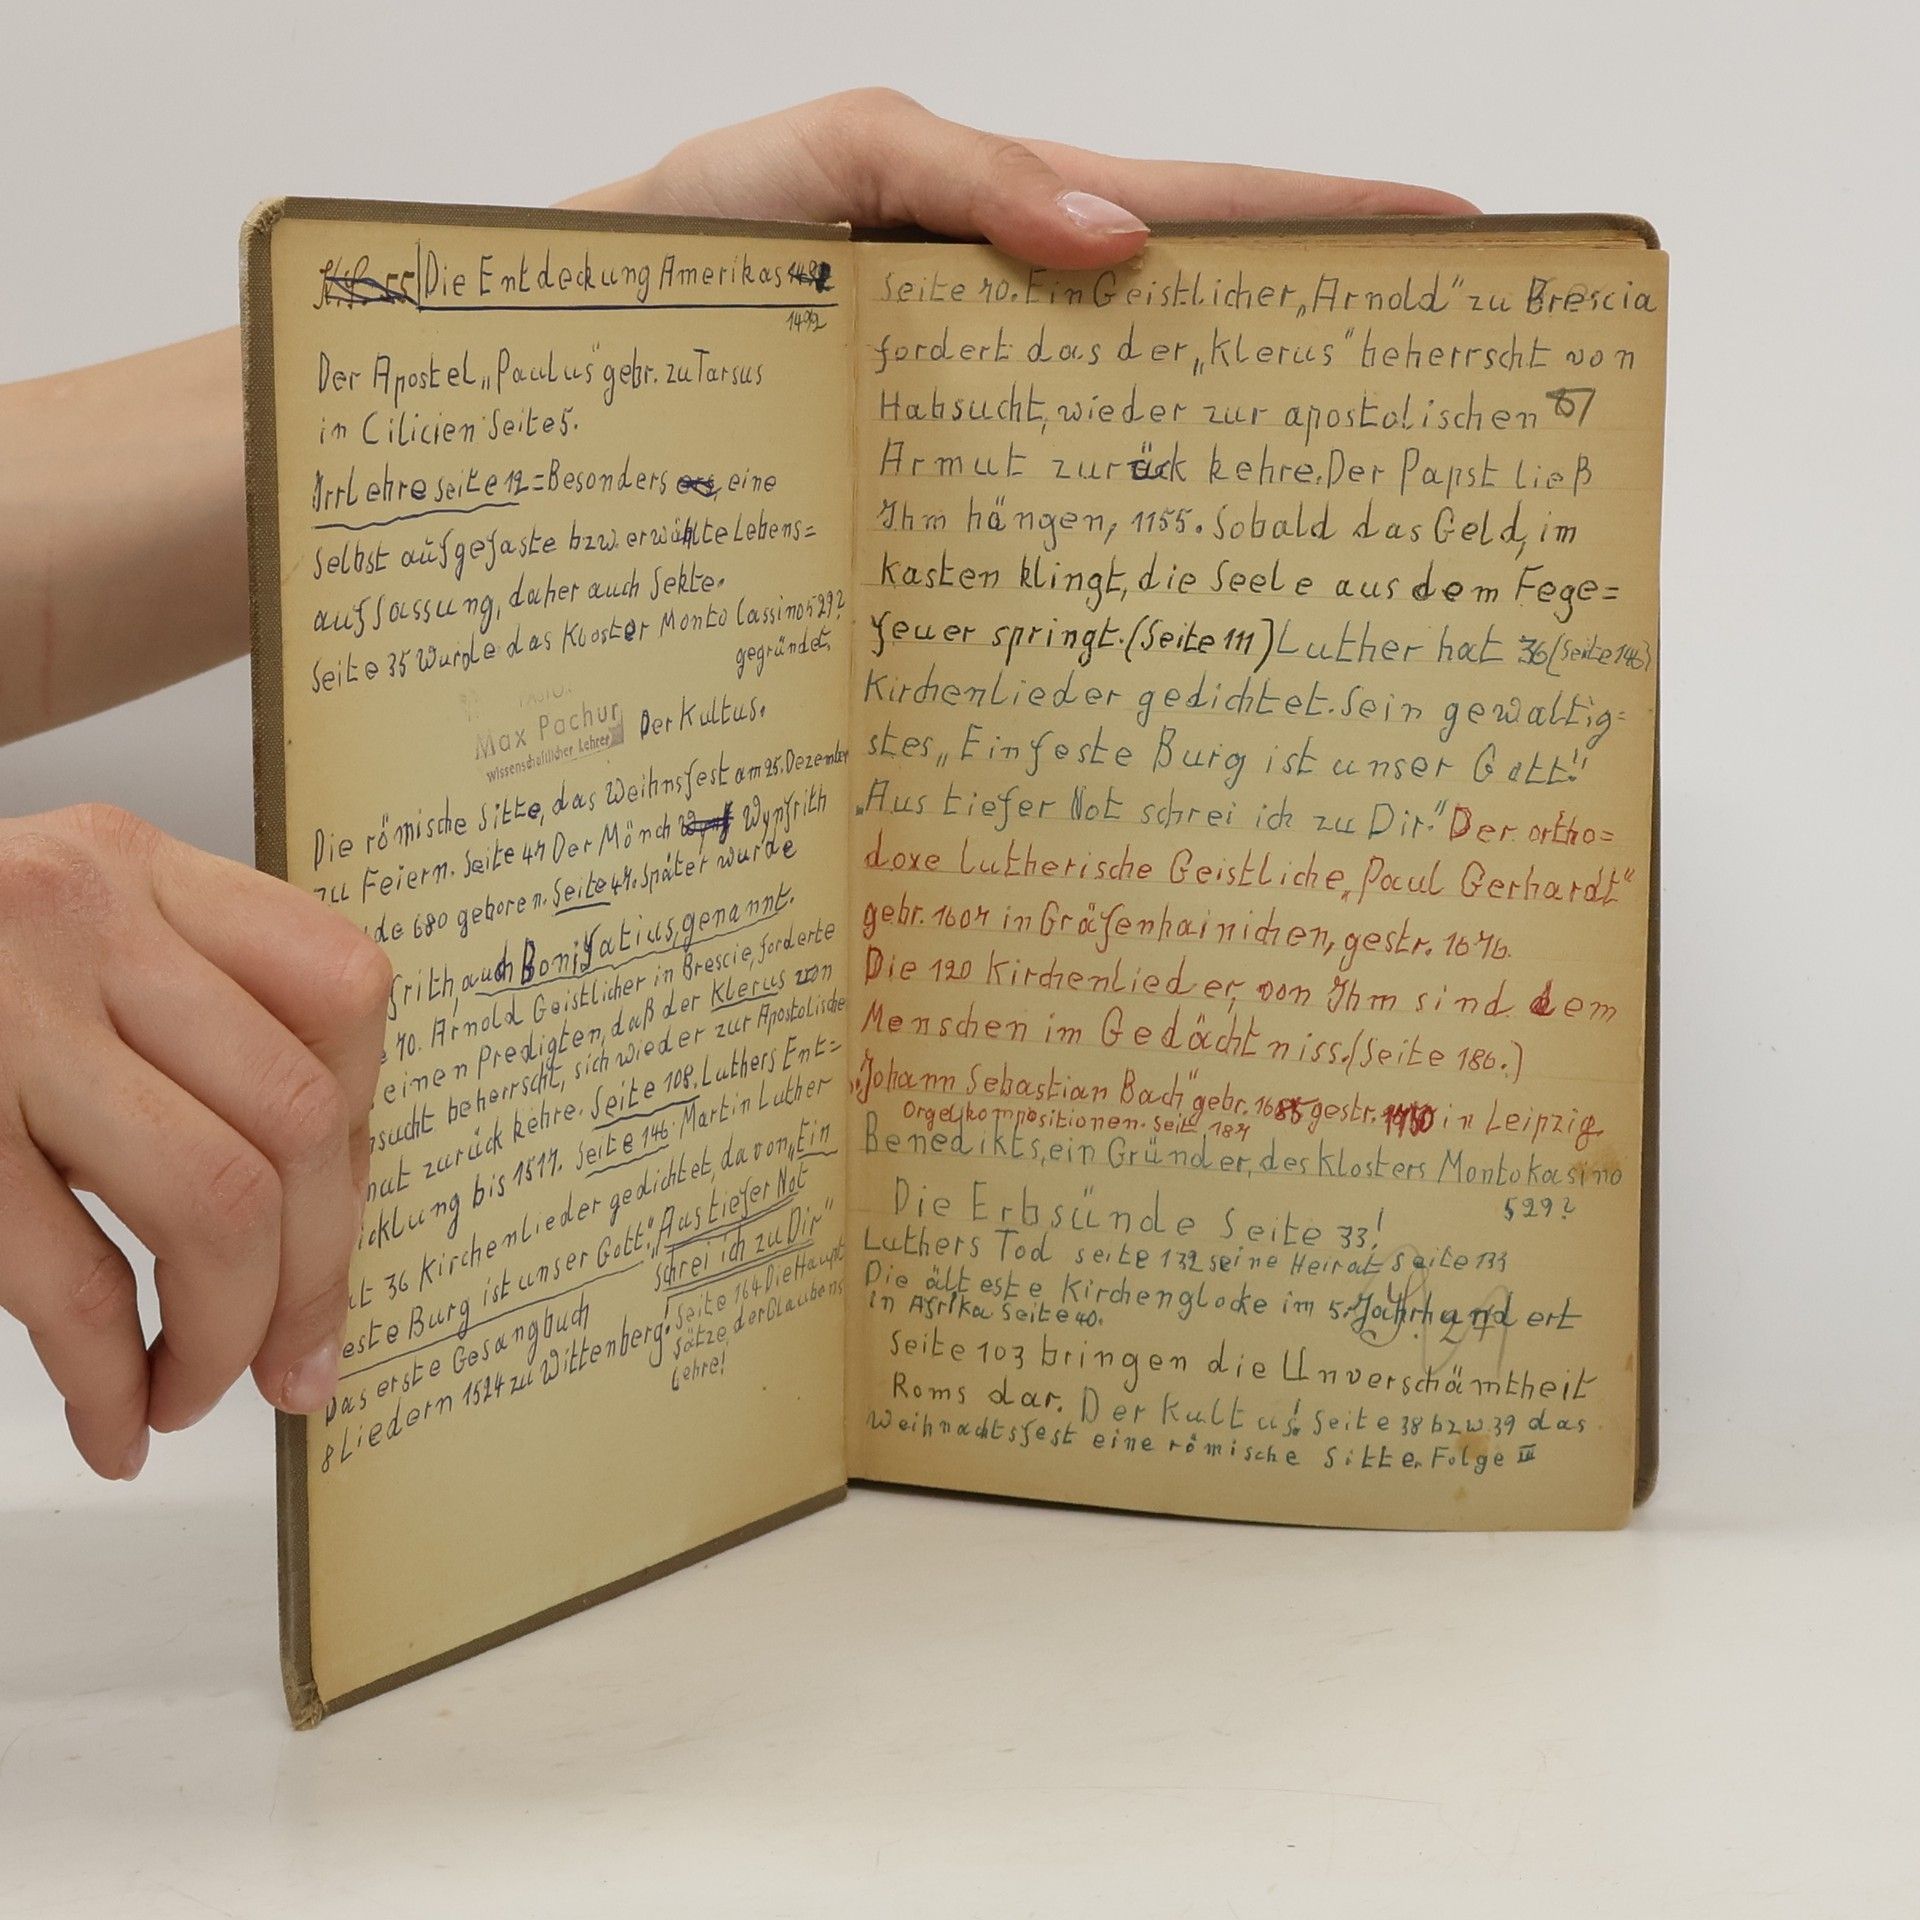 Die Entdeckung Amerikas
1492
Der Apostel „Paulus" gebr. zu Tarsus
in Cilicien Seite 5.
Irrlehre Seite 12 = Besonders eine
Selbst aufgefaste bzw. erwählte Lebens=
auffassung, daher auch Sekte.
Seite 35 Wurde das Kloster Monto Cassino 529?
gegründet.
Max Pachur
wissenschaftlicher Lehrer
Der Kultus.
Die römische Sitte, das Weihnsfest am 25. Dezember
zu Feiern. Seite 47 Der Mönch Wynfrith
de 680 geboren. Seite 47. Später wurde
frith, auch Bonifatius, genannt.
70. Arnold Geistlicher in Brescie, forderte
einen Predigten, daß der Klerus von
sucht beherrscht, sich wieder zur Apostolische
mut zurück kehre. Seite 108. Luthers Ent=
icklung bis 1517. Seite 146. Martin Luther
at 36 Kirchenlieder gedichtet, davon „Ein
este Burg ist unser Gott." „Aus tiefer Not
Schrei ich zu Dir"
Das erste Gesangbuch
8 Liedern 1524 zu Wittenberg.
Seite 164 Die Haupt
Sätze, der Glaubens
Lehre!
Seite 70. Ein Geistlicher „Arnold" zu Brescia
fordert das der „Klerus" beherrscht von
Habsucht, wieder zur apostolischen
Armut zurück kehre. Der Papst ließ
Ihm hängen, 1155. Sobald das Geld, im
Kasten klingt, die Seele aus dem Fege=
feuer springt. (Seite 111) Luther hat 36 (Seite 146)
Kirchenlieder gedichtet. Sein gewaltig=
stes „Ein feste Burg ist unser Gott!"
„Aus tiefer Not schrei ich zu Dir." Der ortho=
doxe Lutherische Geistliche „Paul Gerhardt"
gebr. 1607 in Gräfenhainichen, gestr. 1676.
Die 120 Kirchenlieder, von Ihm sind dem
Menschen im Gedächtniss. (Seite 186.)
„Johann Sebastian Bach" gebr. 1685 gestr. 1750 in Leipzig.
Orgelkompositionen. Seite 187
Benedikts, ein Gründer, des Klosters Montokasino
529?
Die Erbsünde Seite 33!
Luthers Tod Seite 132 seine Heirat Seite 133
Die älteste Kirchenglocke im 5. Jahrhundert
in Afrika Seite 40.
Seite 103 bringen die Unverschämtheit
Roms dar. Der Kultus! Seite 38 bzw. 39 das
Weihnachtsfest eine römische Sitte. Folge III